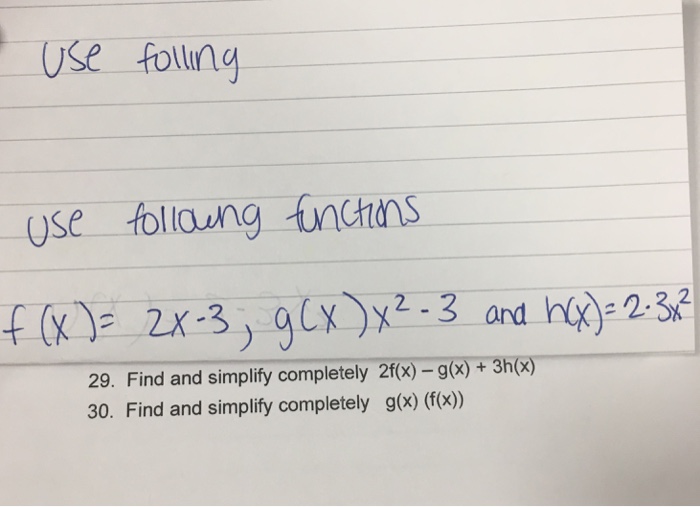 Use folling
Use following functions
f(x)= 2x-3, g(x)x²-3 and h(x)=2-3x²
29. Find and simplify completely 2f(x) – g(x) + 3h(x)
30. Find and simplify completely g(x) (f(x))